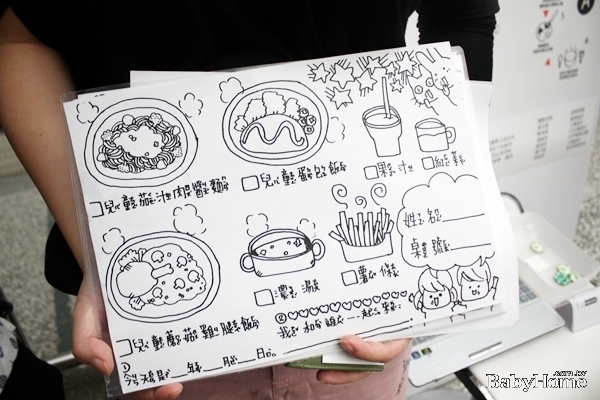 □兒童茄汁肉醬麵
□兒童蛋包飯
□果汁
□紅茶
□兒童蘑菇雞腿飯
□濃湯
□薯條
姓名
桌號
①
今天是__年__月__日。
②
BabyHome.com.tw